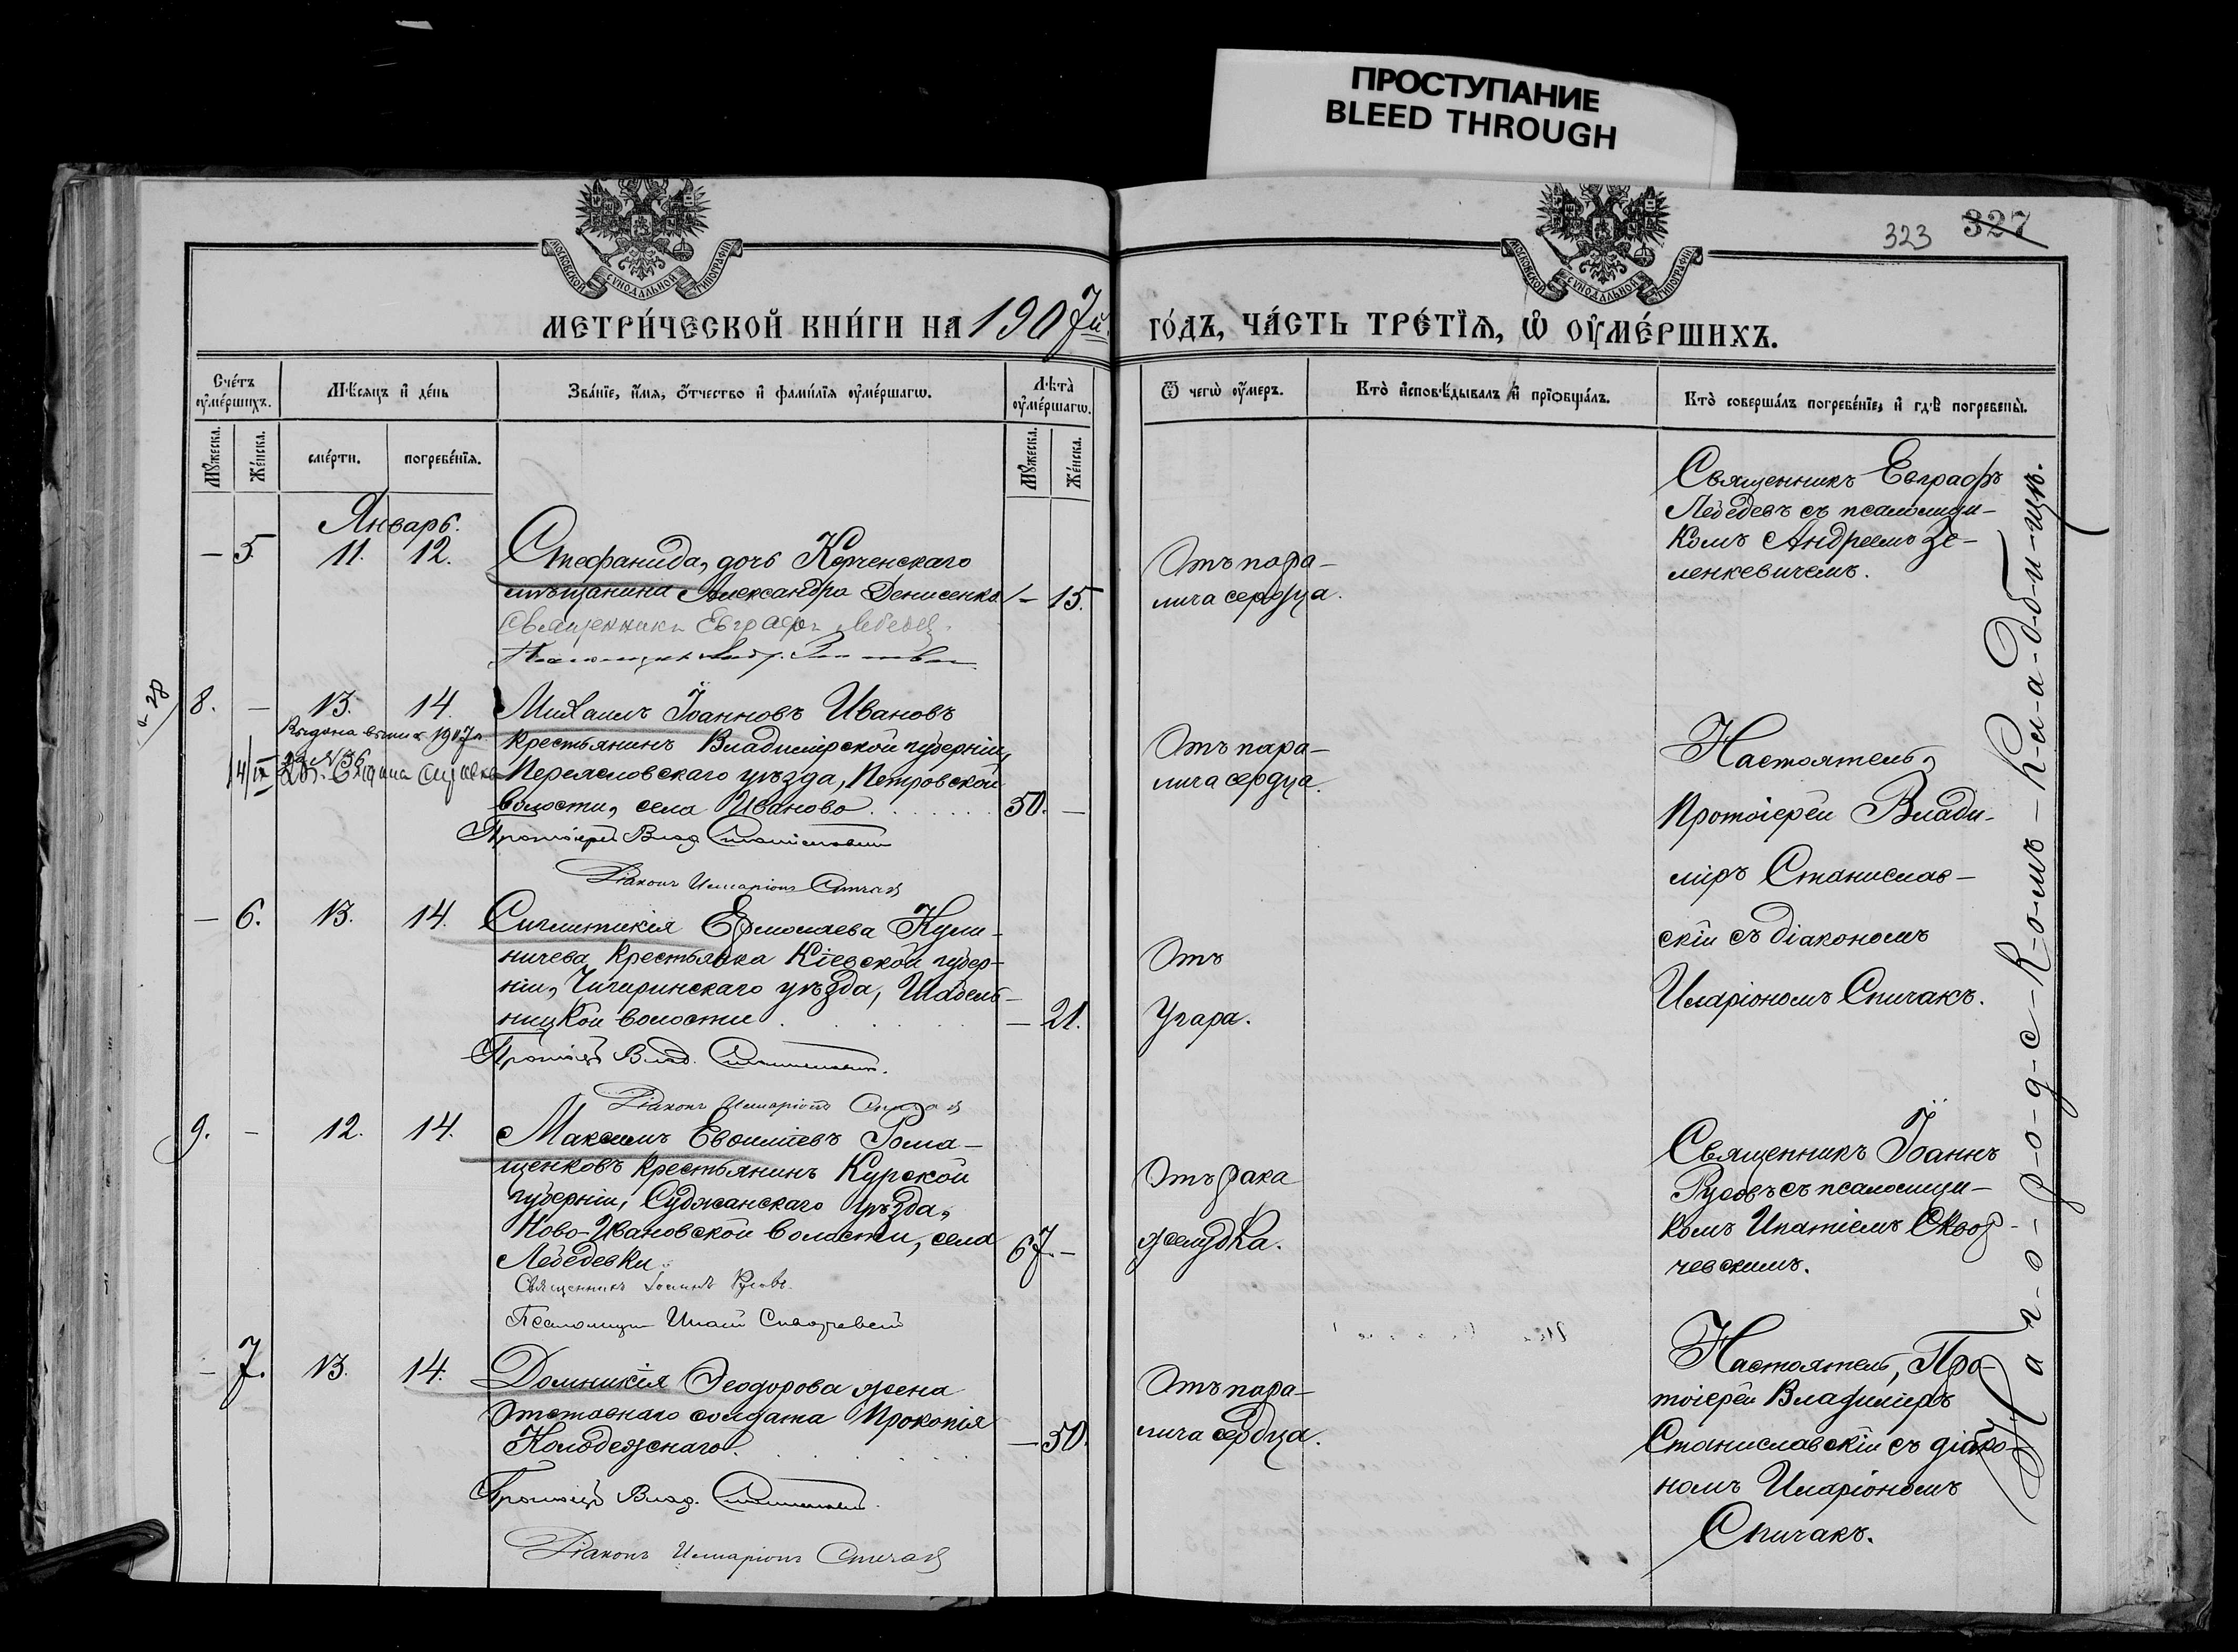 ПРОСТУПАНИЕ
BLEED THROUGH
МОСКОВСКОЙ СѴНОДАЛЬНОЙ ТИПОГРАФІИ
МОСКОВСКОЙ СѴНОДАЛЬНОЙ ТИПОГРАФІИ
323 327
МЕТРИ́ЧЕСКОЙ КНИ́ГИ НА 1907й.
ГО́ДЪ, ЧА́СТЬ ТРЕ́ТІѦ, Ѡ ОУ҆МЕ́РШИХЪ.
Сче́тъ оу҆ме́ршихъ.
Мѣ́сяцъ и҆ де́нь
Зва́нїе, и҆́мѧ, ѻ҆́тчество и҆ фами́лїѧ оу҆ме́ршагѡ.
Лѣта̀ оу҆ме́ршагѡ.
Ѿ чегѡ̀ оу҆́меръ.
Кто̀ и҆сповѣ́дывалъ и҆ прїѡбща́лъ.
Кто̀ соверша́лъ погребе́нїе, и҆ гдѣ̀ погребены̀.
Мꙋжеска.
Же́нска.
сме́рти.
погребе́нїѧ.
Мꙋжеска.
Же́нска.
Январь.
— 5 11. 12. Стефанида, дочь Керченскаго
мѣщанина Александра Денисенко — 15.
Священникъ Евграфъ Лебедев
Отъ пара-
лича сердца.
Священникъ Евграфъ
Лебедевъ съ псаломщи-
комъ Андреемъ Зе-
ленкевичемъ.
8. — 13. 14. Михаилъ Іоанновъ Ивановъ
Выдана выпись 1907 г.
№ 36
крестьянинъ Владимірской губерніи,
Переясловскаго уѣзда, Петровской
волости, села Иваново 50. —
Протоіерей Влад. Станиславскій
Діаконъ Иларіонъ Спичак
Отъ пара-
лича сердца.
Настоятель,
Протоіерей Влади-
міръ Станислав-
скій съ діакономъ
Иларіономъ Спичакъ.
— 6. 13. 14. Сиглитикія Ермолаева Кули-
ничева крестьянка Кіевской губер-
ніи, Чигиринскаго уѣзда, Шабель-
ницкой волости — 21.
Протоіер Влад. Станиславскій
Діаконъ Иларіонъ Спичак
Отъ
Угара.
9. — 12. 14. Максимъ Евѳиміевъ Рома-
щенковъ крестьянинъ Курской
губерніи, Суджанскаго уѣзда,
Ново-Ивановской волости, села
Лебедевки 67. —
Священникъ Іоаннъ Русовъ
Псаломщик Ипатій Скворчевскій
Отъ рака
желудка.
Священникъ Іоаннъ
Русовъ съ псаломщи-
комъ Ипатіемъ Сквор-
чевскимъ.
— 7. 13. 14. Домникія Ѳеодорова жена
Отставнаго солдата Прокопія
Колодежнаго — 50.
Протоіер Влад. Станиславскій
Діаконъ Иларіонъ Спичак
Отъ пара-
лича сердца.
Настоятель, Про-
тоіерей Владиміръ
Станиславскій съ діако-
номъ Иларіономъ
Спичакъ.
На-го-ро-д-с-к-о-мъ-к-л-а-д-б-и-щѣ.